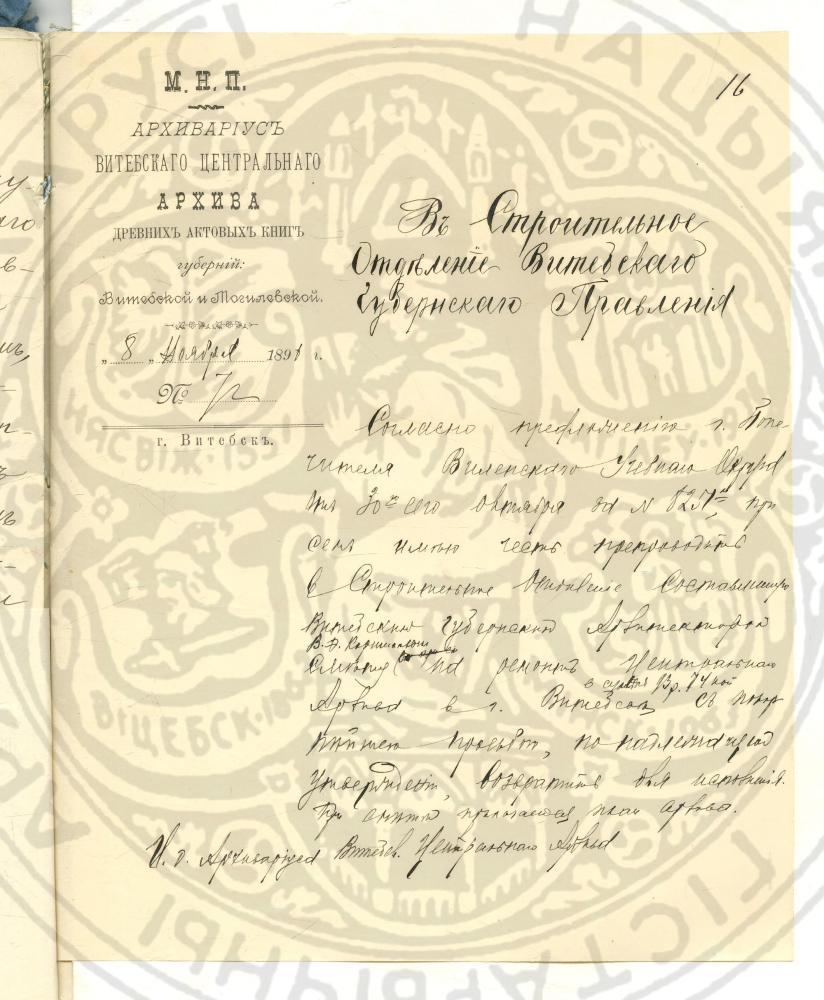 16
М. Н. П.
АРХИВАРІУСЪ
ВИТЕБСКАГО ЦЕНТРАЛЬНАГО
АРХИВА
ДРЕВНИХЪ АКТОВЫХЪ КНИГЪ
губерній:
Витебской и Могилевской.
„ 8 „ Ноября 1891 г.
№ 72
г. Витебскъ.
Въ Строительное
Отдѣленіе Витебскаго
Губернскаго Правленія
Согласно предложенію г. Попе-
чителя Виленскаго Учебнаго Округа
отъ 30 сего октября за №
семъ имѣю честь препроводить
в Строительное Отдѣленіе составленную
Витебскимъ Губернскимъ Архитекторомъ
В. Ф.
смѣту на ремонтъ Центральнаго
в суммѣ 93 р. 74 коп
Архива в г. Витебскѣ, съ покор
нѣйшею просьбою, по надлежащемъ
утвержденіи, возвратить для исполненія.
При смѣтѣ прилагается планъ архива.
И. д. Архиваріуса Витебск. Центральнаго Архива
ВІЦЕБСК